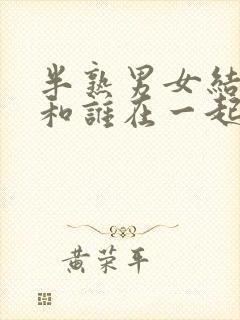 半熟男女結
和誰在一起
黄荣平